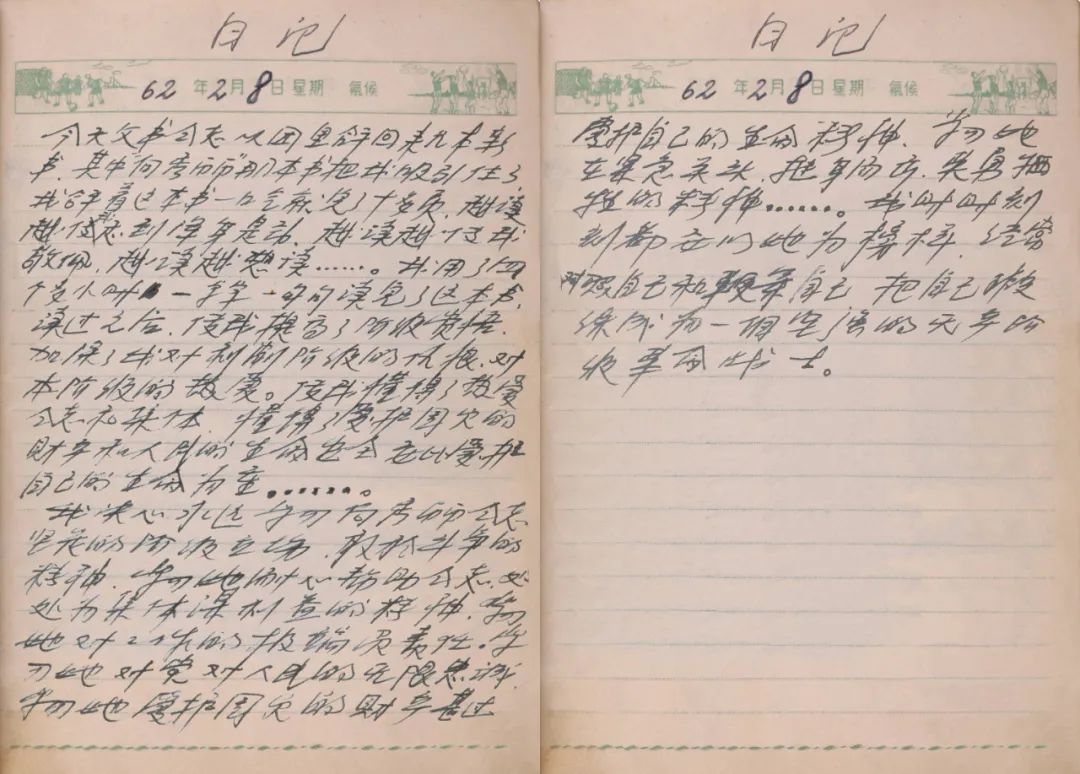 日记
62年2月8日 星期 氣候
今天文书同志从团里领回来几本新
书，其中向秀丽那本书把我吸引住了
我拿着这本书一口气就读了十多页，越读
越使我感到
敬佩，越读越想读……。我用了四
个多小时 一字字一句句读完了这本书，
读过之后，使我提高了阶级觉悟，
加深了我对剥削阶级的仇恨，对
本阶级的敬爱。使我懂得了敬爱
同志和集体，懂得了爱护国家的
财产和人民的生命安全应比爱护
自己的生命为重……。
我决心永远学习向秀丽同志
坚定的阶级立场，敢于斗争的
精神，学习她耐心帮助同志，处
处为集体谋利益的精神，学习
她对工作的极端负责任。学
习她对党对人民的无限忠诚，
学习她爱护国家的财产甚过
日记
62年2月8日 星期 氣候
爱护自己的生命精神，学习她
在紧急关头，挺身而出，英勇牺
牲的精神……。我时时刻
刻都应以她为榜样，经常
对照自己和 自己 把自己锻
炼成为一个坚强的无产阶
级革命战士。